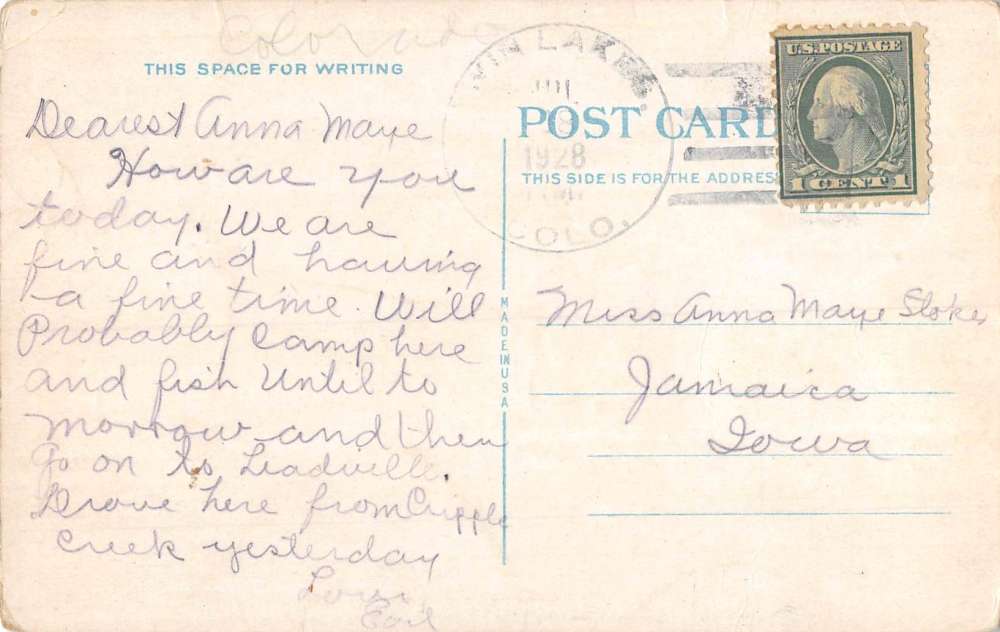 Colorado
THIS SPACE FOR WRITING
Dearest Anna Maye
How are you
today. We are
fine and having
a fine time. Will
Probably Camp here
and fish Until to
morrow and then
go on to Leadville.
Drove here from Cripple
Creek yesterday
Earl
TWIN LAKES
JUL
1928
COLO.
U.S. POSTAGE
1 CENT 1
POST CARD
THIS SIDE IS FOR THE ADDRESS
MADE IN USA
Miss Anna Maye Stokes
Jamaica
Iowa